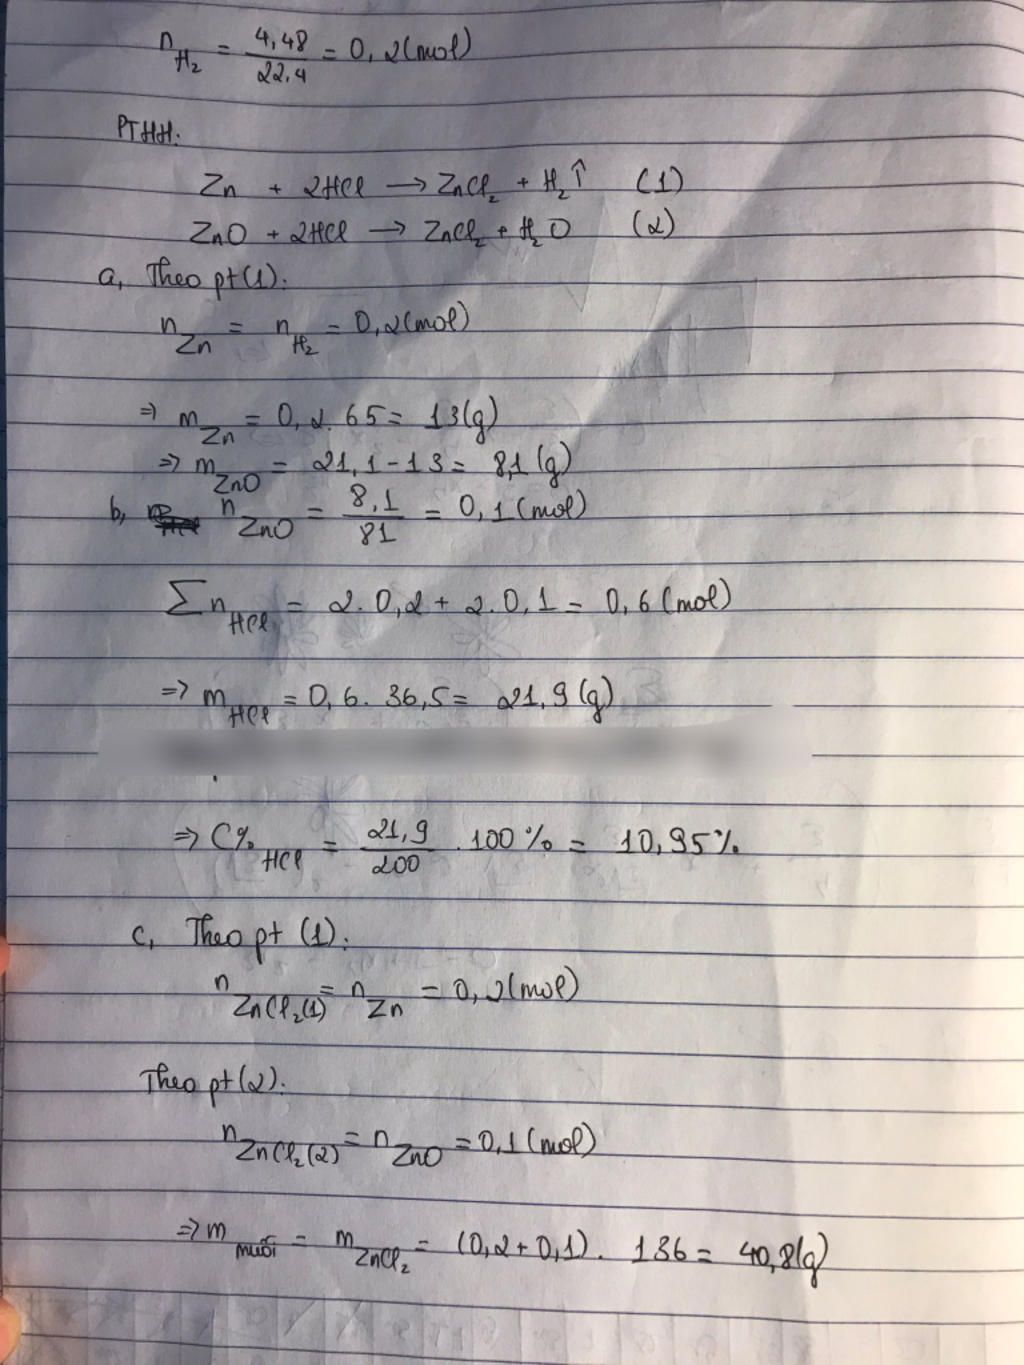 n H₂ = 4,48 / 22,4 = 0,2 (mol)
PTHH:
Zn + 2HCl → ZnCl₂ + H₂↑ (1)
ZnO + 2HCl → ZnCl₂ + H₂O (2)
a, Theo pt (1):
n Zn = n H₂ = 0,2 (mol)
⇒ m Zn = 0,2. 65 = 13 (g)
⇒ m ZnO = 21,1 - 13 = 8,1 (g)
b, n ZnO = 8,1 / 81 = 0,1 (mol)
∑n HCl = 2.0,2 + 2.0,1 = 0,6 (mol)
⇒ m HCl = 0,6. 36,5 = 21,9 (g)
⇒ C% HCl = 21,9 / 200 .100% = 10,95%.
c, Theo pt (1):
n ZnCl₂(1) = n Zn = 0,2 (mol)
Theo pt (2):
n ZnCl₂(2) = n ZnO = 0,1 (mol)
⇒ m muối = m ZnCl₂ = (0,2 + 0,1). 136 = 40,8 (g)